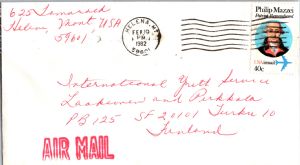 625 Tamarack
Helena, Mont USA
59601
HELENA, MT
FEB 19
PM
1982
59601
Philip Mazzei
Patriot Remembered
USAirmail
40c
International Youth Service
Laaksonen and Pirkkala
PB 125 SF 20101 Turku 10
Finland
AIR MAIL